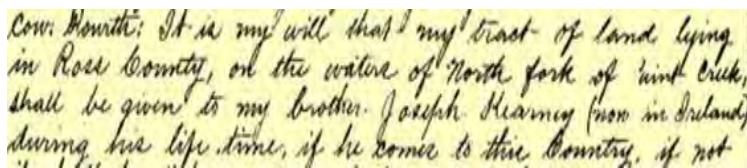 cow: Fourth: It is my will that my tract of land lying
in Ross County, on the waters of North fork of Paint Creek,
shall be given to my brother Joseph Kearney (now in Ireland)
during his life time, if he comes to this Country, if not